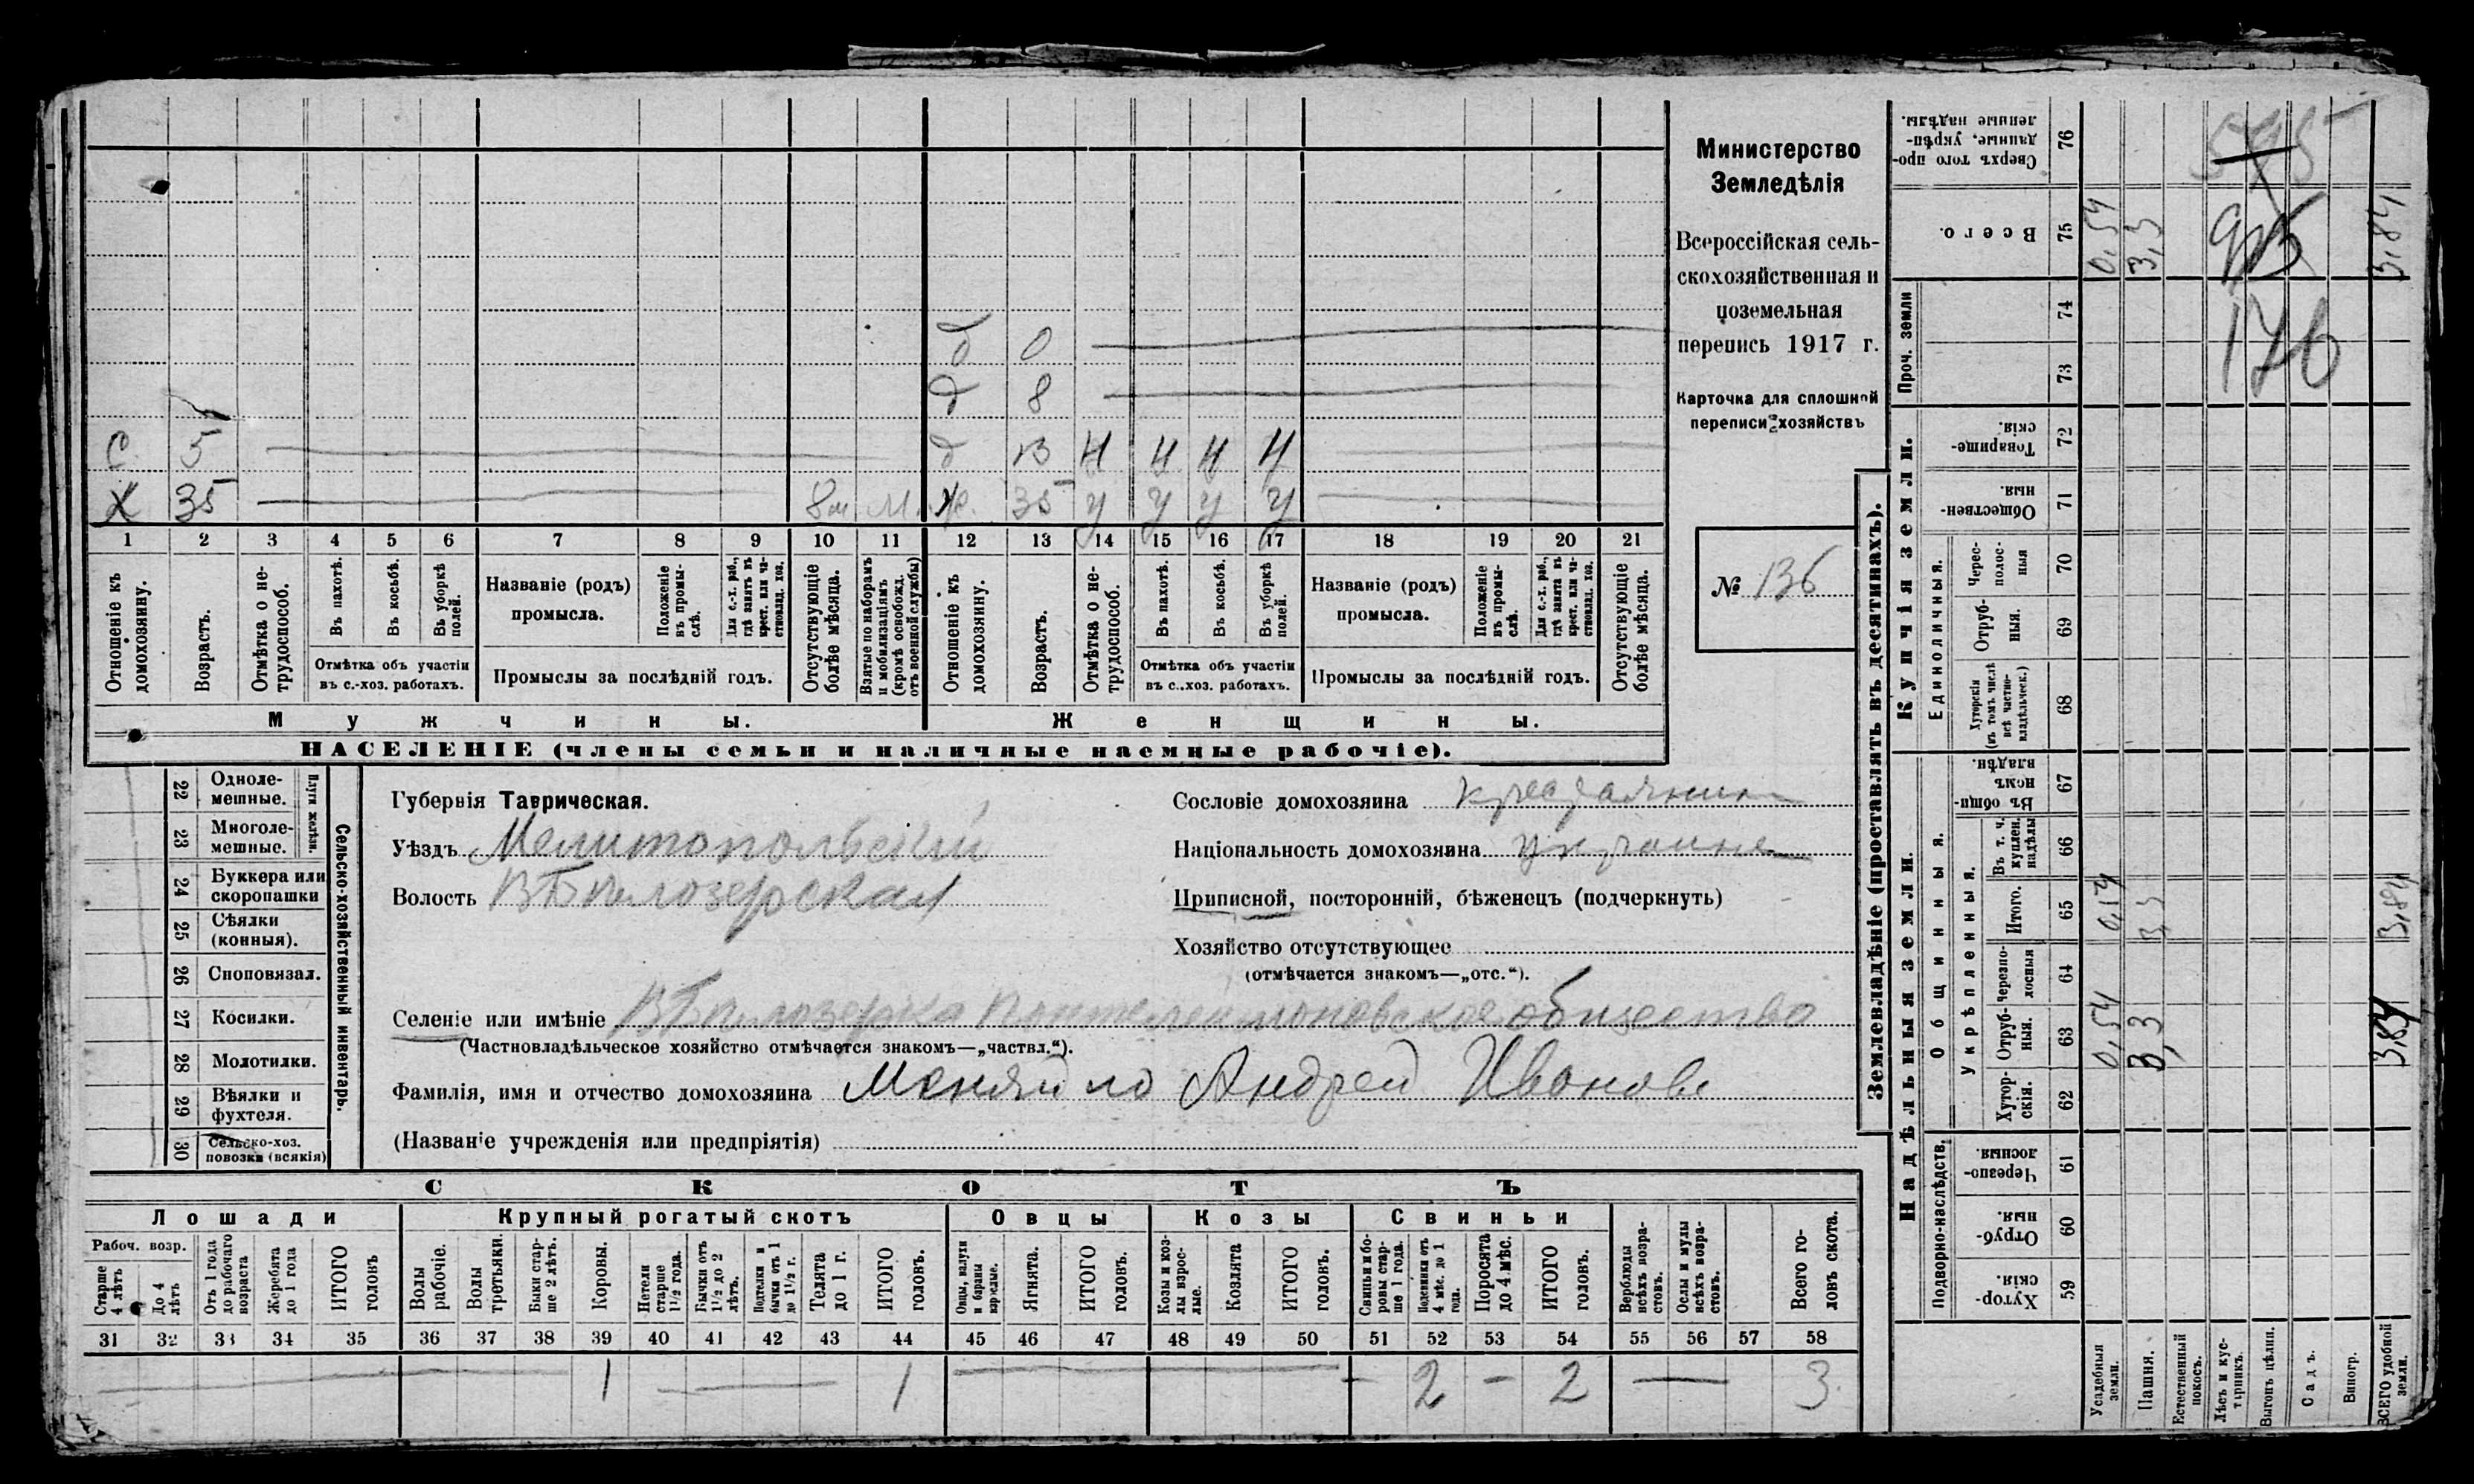 Министерство
Земледѣлія
Всероссійская сель-
скохозяйственная и
поземельная
перепись 1917 г.
Карточка для сплошной
переписи хозяйствъ
№ 136
б 0
д 8
С 5 д 13 Н Н Н Н
Х 35 8м М. ж. 35 У У У У
1 2 3 4 5 6 7 8 9 10 11 12 13 14 15 16 17 18 19 20 21
Отношеніе къ домохозяину.
Возрастъ.
Отмѣтка о не-трудоспособ.
Въ пахотѣ.
Въ косьбѣ.
Въ уборкѣ полей.
Отмѣтка объ участіи
въ с.-хоз. работахъ.
Названіе (родъ)
промысла.
Положеніе въ промы-слѣ.
Для с.-х. раб., гдѣ занятъ въ крест. или ча-стновлад. хоз.
Промыслы за послѣдній годъ.
Отсутствующіе болѣе мѣсяца.
Взятые по наборамъ и мобилизаціямъ (кромѣ освобожд. отъ военной службы)
Отношеніе къ домохозяину.
Возрастъ.
Отмѣтка о не-трудоспособ.
Въ пахотѣ.
Въ косьбѣ.
Въ уборкѣ полей.
Отмѣтка объ участіи
въ с..хоз. работахъ.
Названіе (родъ)
промысла.
Положеніе въ промы-слѣ.
Для с.-х. раб., гдѣ занята въ крест. или ча-стновлад. хоз.
Промыслы за послѣдній годъ.
Отсутствующіе болѣе мѣсяца.
Мужчины.
Женщины.
НАСЕЛЕНІЕ (члены семьи и наличные наемные рабочіе).
22 Одноле-мешные.
23 Многоле-мешные.
Плуги желѣзн.
24 Буккера или скоропашки
25 Сѣялки (конныя).
26 Споповязал.
27 Косилки.
28 Молотилки.
29 Вѣялки и фухтеля.
30 Сельско-хоз. повозки (всякія)
Сельско-хозяйственный инвентарь.
Губернія Таврическая.
Уѣздъ Мелитопольскій
Волость ВБѣлозерская
Сословіе домохозяина крестьянин
Національность домохозяина украине
Приписной, посторонній, бѣженецъ (подчеркнуть)
Хозяйство отсутствующее
(отмѣчается знакомъ—„отс.“).
Селеніе или имѣніе ВБѣлозерка Пантелеймоновское общество
(Частновладѣльческое хозяйство отмѣчается знакомъ—„частвл.“).
Фамилія, имя и отчество домохозяина Меняйло Андрей Иванов
(Названіе учрежденія или предпріятія)
СКОТЪ
Лошади
Крупный рогатый скотъ
Овцы
Козы
Свиньи
Рабоч. возр.
Старше 4 лѣтъ
До 4 лѣтъ
Отъ 1 года до рабочаго возраста
Жеребята до 1 года
ИТОГО головъ
Волы рабочіе.
Волы третьяки.
Быки стар-ше 2 лѣтъ.
Коровы.
Нетели старше 1½ года.
Бычки отъ 1½ до 2 лѣтъ.
Подтелки и бычки отъ 1 до 1½ г.
Телята до 1 г.
ИТОГО головъ.
Овцы, валухи и бараны взрослые.
Ягнята.
ИТОГО головъ.
Козы и коз-лы взрос-лые.
Козлята
ИТОГО головъ.
Свиньи и бо-ровы стар-ше 1 года.
Подсвинки отъ 4 мѣс. до 1 года.
Поросята до 4 мѣс.
ИТОГО головъ.
Верблюды всѣхъ возра-стовъ.
Ослы и мулы всѣхъ возра-стовъ.
Всего го-ловъ скота.
31 32 33 34 35 36 37 38 39 40 41 42 43 44 45 46 47 48 49 50 51 52 53 54 55 56 57 58
1 1 2 2 3
Землевладѣніе (проставлять въ десятинахъ).
Купчія земли.
Надѣльныя земли.
Сверхъ того про-данные, укрѣп-ленные надѣлы. 76
Всего. 75 0,54 3,3 3,84
Проч. земли 74 73
Товарище-скія. 72
Обществен-ныя. 71
Единоличныя.
Черес-полос-ныя 70
Отруб-ныя. 69
Хуторскія (въ томъ числѣ всѣ частно-владѣльческ.) 68
Общинныя.
Въ общи-номъ владѣн. 67
Укрѣпленныя.
Въ т. ч. куплен. надѣлы 66
Итого. 65 3,3 3,84
Черезпо-лосныя 64
Отруб-ныя. 63 0,54 3,3 3,84
Хутор-скія. 62
Подворно-наслѣдств.
Черезпо-лосныя. 61
Отруб-ныя. 60
Хутор-скія. 59
Усадебныя земли.
Пашня.
Естественный покосъ.
Лѣсъ и кус-тарникъ.
Выгонъ цѣлин.
Садъ.
Виногр.
ВСЕГО удобной земли.
595
176